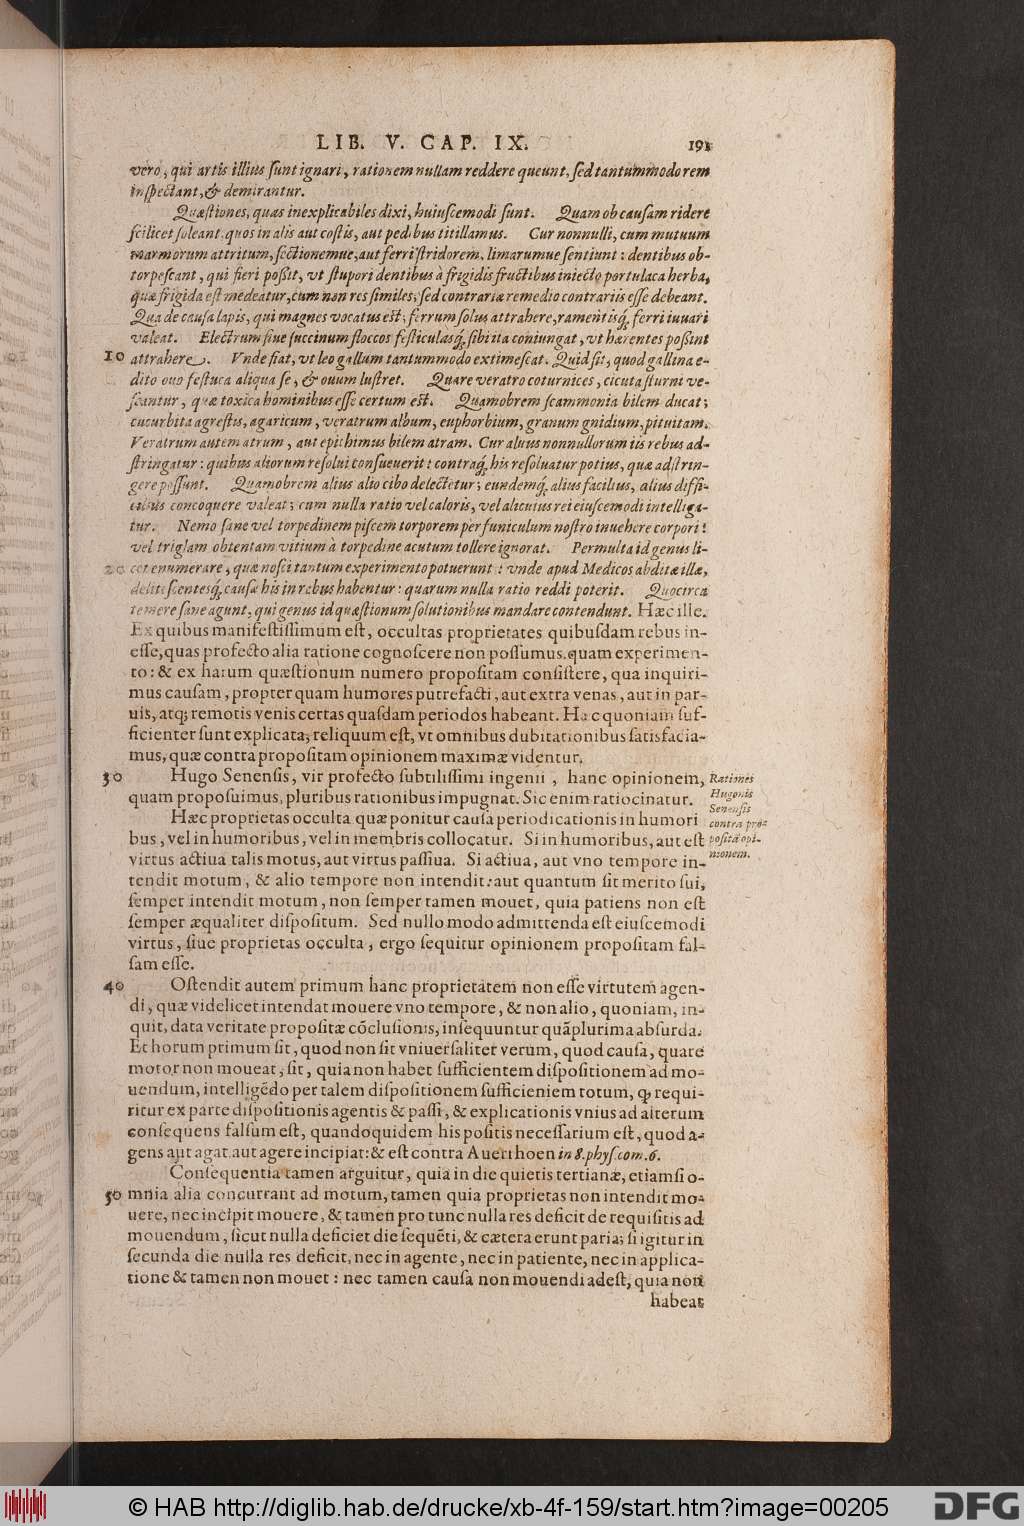 LIB. V. CAP. IX. 191
vero, qui artis illius ſunt ignari, rationem nullam reddere queunt, ſed tantummodo rem
inſpectant, & demirantur.
Quæſtiones, quas inexplicabiles dixi, huiuſcemodi ſunt. Quam ob cauſam ridere
ſcilicet ſoleant, quos in alis aut coſtis, aut pedibus titillamus. Cur nonnulli, cum mutuum
marmorum attritum, ſectionemue, aut ferri ſtridorem, limarumue ſentiunt: dentibus ob-
torpeſcant, qui fieri poßit, vt ſtupori dentibus à frigidis fructibus iniecto portulaca herba,
quæ frigida eſt medeatur, cum non res ſimiles, ſed contrariæ remedio contrariis eſſe debeant.
Qua de cauſa lapis, qui magnes vocatus eſt, ferrum ſolus attrahere, ramentiſq; ferri iuuari
valeat. Electrum ſiue ſuccinum floccos feſticulaſq; ſibi ita coniungat, vt hærentes poßint
10 attrahere. Vnde fiat, vt leo gallum tantummodo extimeſcat. Quid ſit, quod gallina e-
dito ouo feſtuca aliqua ſe, & ouum luſtret. Quare veratro coturnices, cicuta ſturni ve-
ſcantur, quæ toxica hominibus eſſe certum eſt. Quamobrem ſcammonia bilem ducat;
cucurbita agreſtis, agaricum, veratrum album, euphorbium, granum gnidium, pituitam.
Veratrum autem atrum, aut epithimus bilem atram. Cur aluus nonnullorum iis rebus ad-
ſtringatur: quibus aliorum reſolui conſueuerit: contraq; his reſoluatur potius, quæ adſtrin-
gere poſſunt. Quamobrem alius alio cibo delectetur; eundemq; alius facilius, alius diffi-
cilius concoquere valeat; cum nulla ratio vel caloris, vel alicuius rei eiuſcemodi intelliga-
tur. Nemo ſane vel torpedinem piſcem torporem per funiculum noſtro inuehere corpori:
vel triglam obtentam vitium à torpedine acutum tollere ignorat. Permulta id genus li-
20 cet enumerare, quæ noſci tantum experimento potuerunt: vnde apud Medicos abditæ illæ,
deliteſcenteſq; cauſæ his in rebus habentur: quarum nulla ratio reddi poterit. Quocirca
temere ſane agunt, qui genus id quæſtionum ſolutionibus mandare contendunt. Hæc ille.
Ex quibus manifeſtiſſimum eſt, occultas proprietates quibuſdam rebus in-
eſſe, quas profecto alia ratione cognoſcere non poſſumus, quam experimen-
to: & ex harum quæſtionum numero propoſitam conſiſtere, qua inquiri-
mus cauſam, propter quam humores putrefacti, aut extra venas, aut in par-
uis, atq; remotis venis certas quaſdam periodos habeant. Hæc quoniam ſuf-
ficienter ſunt explicata; reliquum eſt, vt omnibus dubitationibus ſatisfacia-
mus, quæ contra propoſitam opinionem maximæ videntur.
30 Hugo Senenſis, vir profecto ſubtiliſſimi ingenii, hanc opinionem,
quam propoſuimus, pluribus rationibus impugnat. Sic enim ratiocinatur.
Rationes
Hugonis
Senenſis
contra pro-
poſitã opi-
nionem.
Hæc proprietas occulta quæ ponitur cauſa periodicationis in humori
bus, vel in humoribus, vel in membris collocatur. Si in humoribus, aut eſt
virtus actiua talis motus, aut virtus paſſiua. Si actiua, aut vno tempore in-
tendit motum, & alio tempore non intendit: aut quantum ſit merito ſui,
ſemper intendit motum, non ſemper tamen mouet, quia patiens non eſt
ſemper æqualiter diſpoſitum. Sed nullo modo admittenda eſt eiuſcemodi
virtus, ſiue proprietas occulta, ergo ſequitur opinionem propoſitam fal-
ſam eſſe.
40 Oſtendit autem primum hanc proprietatem non eſſe virtutem agen-
di, quæ videlicet intendat mouere vno tempore, & non alio, quoniam, in-
quit, data veritate propoſitæ cõcluſionis, inſequuntur quãplurima abſurda.
Et horum primum ſit, quod non ſit vniuerſaliter verum, quod cauſa, quare
motor non moueat, ſit, quia non habet ſufficientem diſpoſitionem ad mo-
uendum, intelligẽdo per talem diſpoſitionem ſufficieniem totum, ꝙ requi-
ritur ex parte diſpoſitionis agentis & paſſi, & explicationis vnius ad alterum
conſequens falſum eſt, quandoquidem his poſitis neceſſarium eſt, quod a-
gens aut agat aut agere incipiat: & eſt contra Auerrhoen in 8. phyſ. com. 6.
Conſequentia tamen arguitur, quia in die quietis tertianæ, etiamſi o-
50 mnia alia concurrant ad motum, tamen quia proprietas non intendit mo-
uere, nec incipit mouere, & tamen pro tunc nulla res deficit de requiſitis ad
mouendum, ſicut nulla deficiet die ſequẽti, & cætera erunt paria; ſi igitur in
ſecunda die nulla res deficit, nec in agente, nec in patiente, nec in applica-
tione & tamen non mouet: nec tamen cauſa non mouendi adeſt, quia non
habeat
© HAB http://diglib.hab.de/drucke/xb-4f-159/start.htm?image=00205
DFG